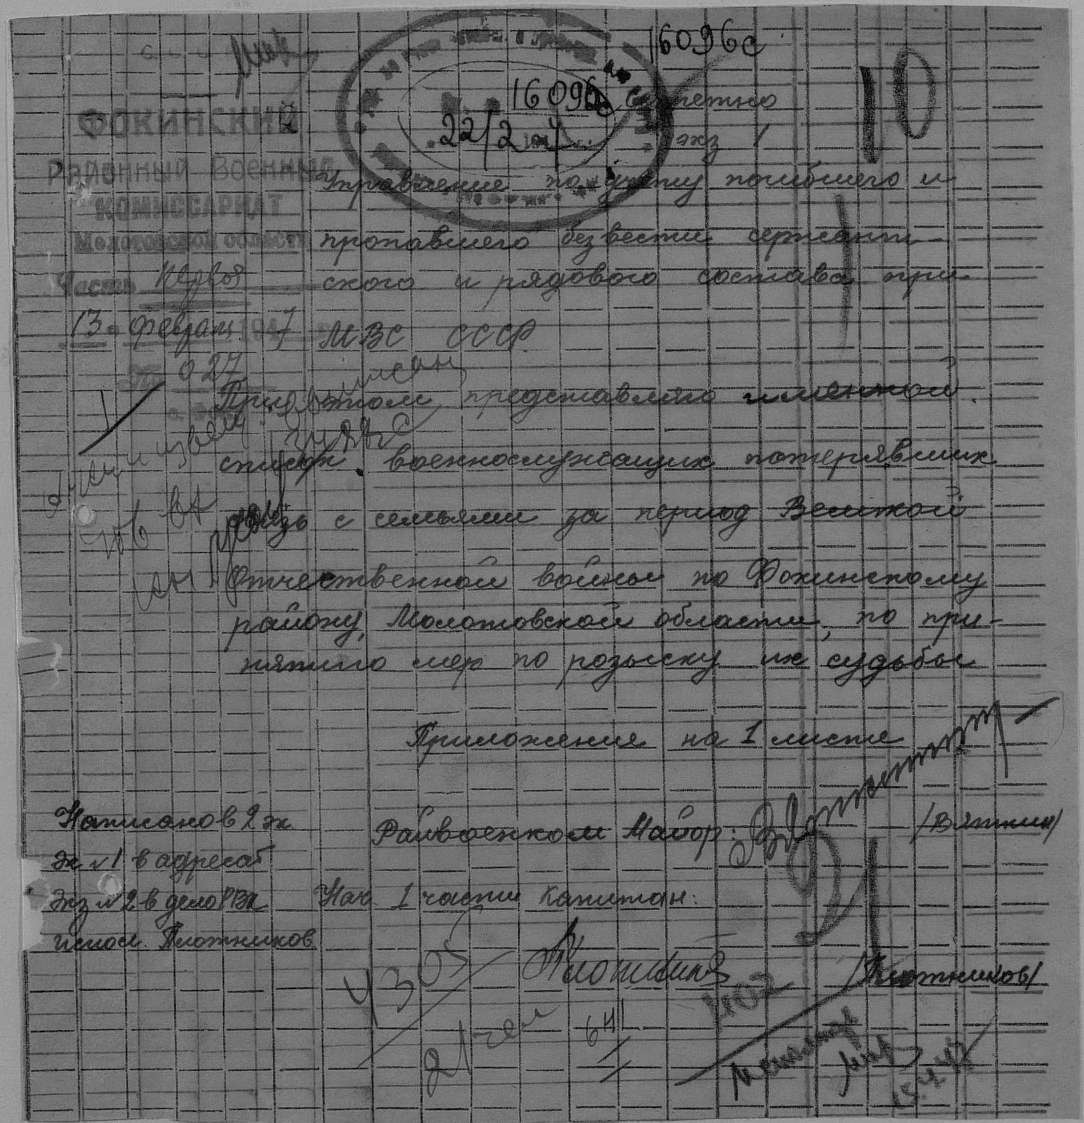 16096с
16096с
22/2
Секретно
экз 1
10
ФОКИНСКИЙ
Районный Военный
КОМИССАРИАТ
Молотовской области
Часть первая
13 февраля 1947
№ 027
Управление по учету погибшего и
пропавшего без вести сержант
ского и рядового состава при
МВС СССР
При этом представляю именной
список военнослужащих потерявших
связь с семьями за период Великой
Отечественной войны по Фокинскому
району, Молотовской области, по при-
нятию мер по розыску их судьбы
Приложение на 1 листе
Райвоенком Майор: /Вяткин/
Нач 1 части капитан:
Плотников /Плотников/
Написано в 2 эк
Эк №1 в адресат
Экз №2 в дело РВК
исполн. Плотников
21
4305
21 чел
641
402